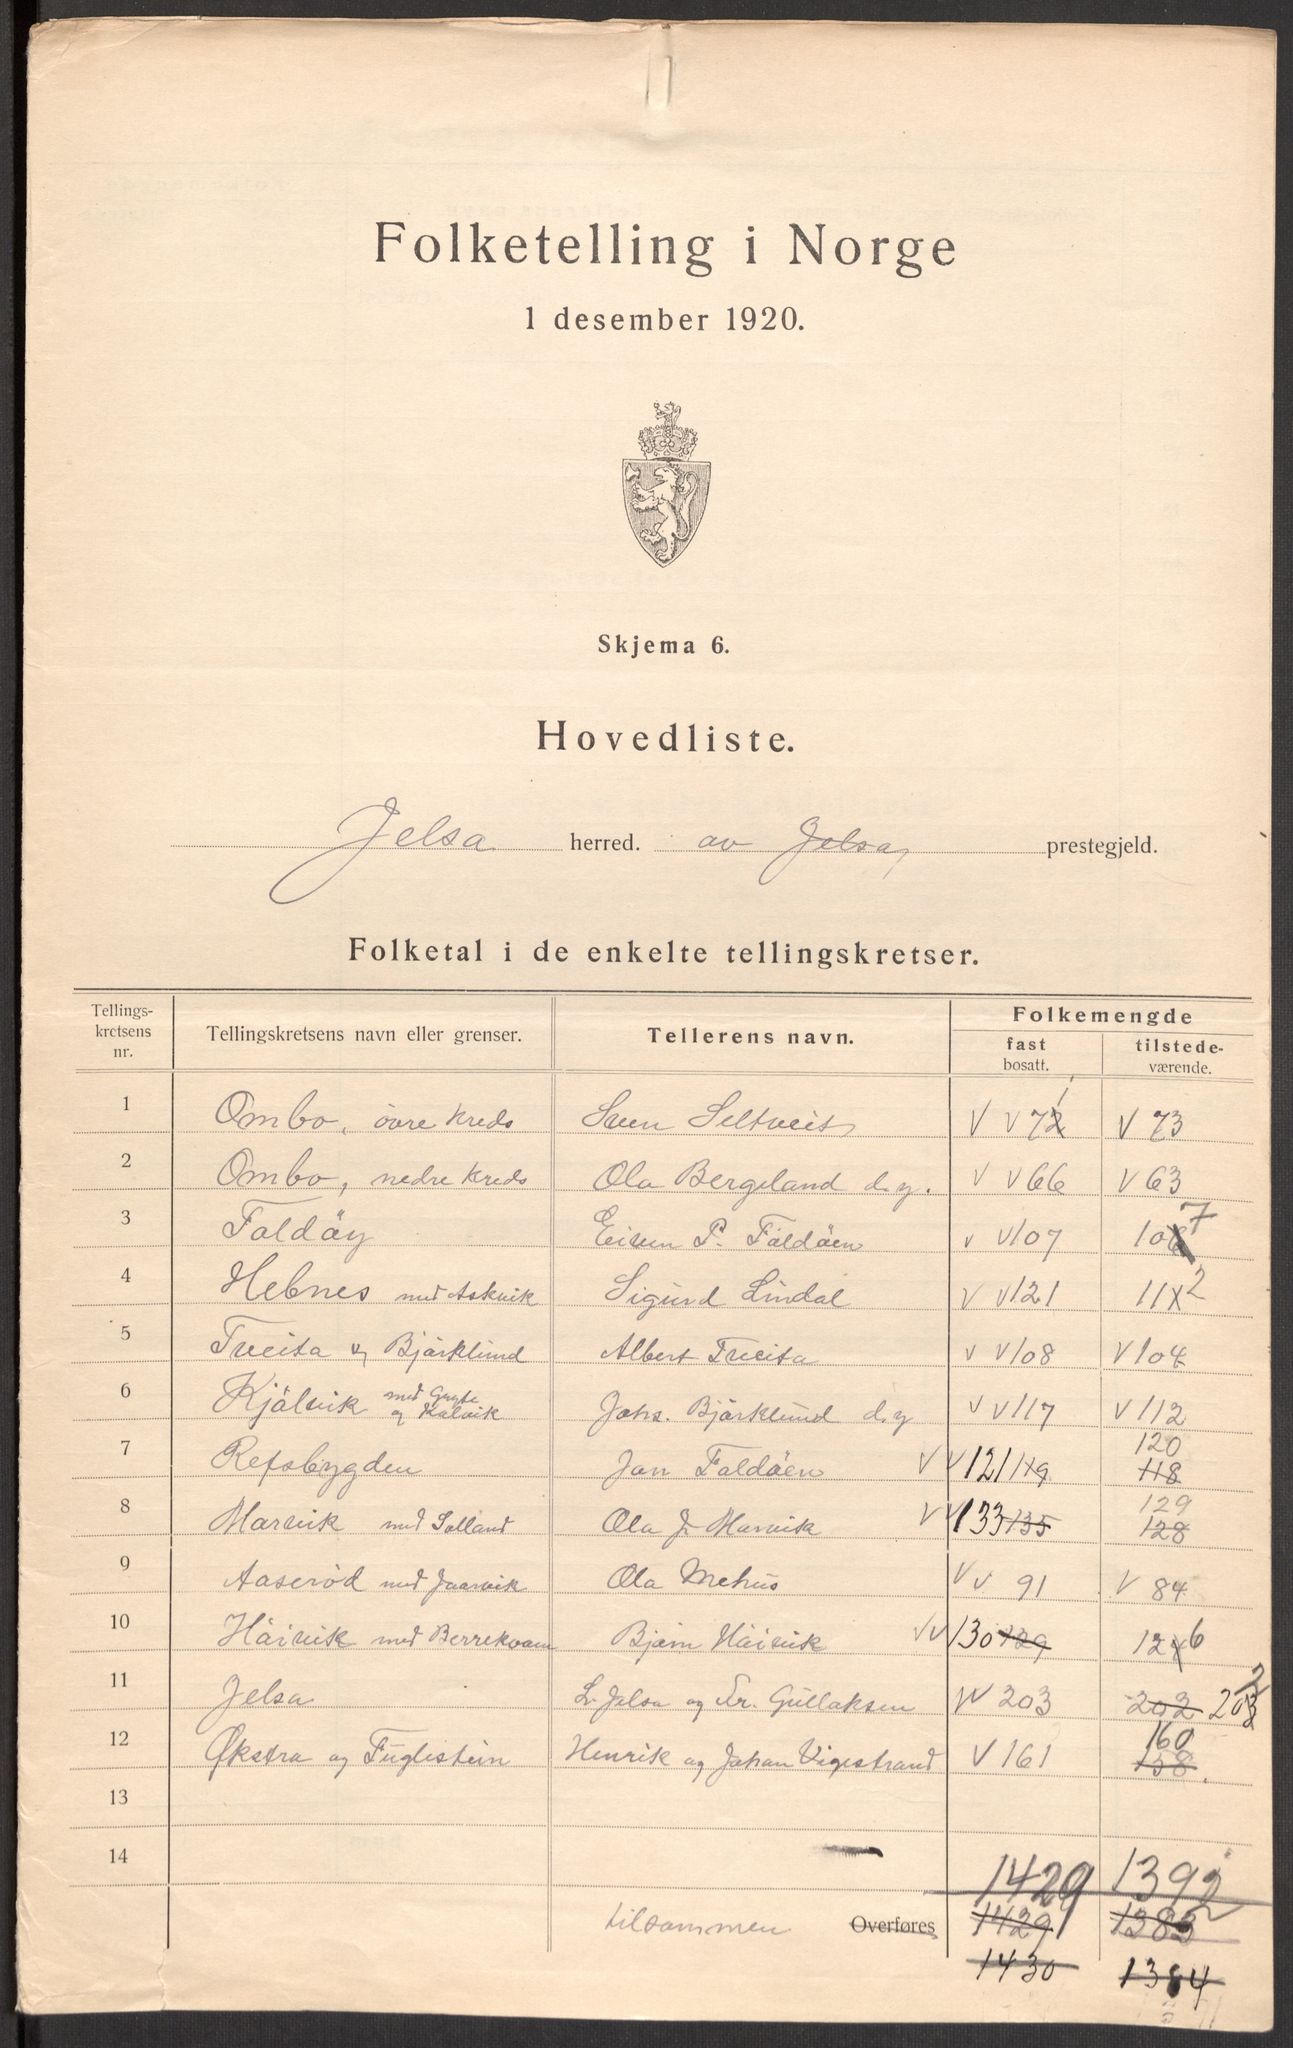 Folketelling i Norge
1 desember 1920.
Skjema 6.
Hovedliste.
Jelsa herred. av Jelsa prestegjeld.
Folketal i de enkelte tellingskretser.
Tellings-
kretsens
nr.
Tellingskretsens navn eller grenser.
Tellerens navn.
Folkemengde
fast
bosatt.
tilstede-
værende.
1 Ombo, övre kreds Sven Seltveit V V 72 1 V 73
2 Ombo, nedre kreds Ola Bergeland d.y. V V 66 V 63
3 Foldöy P. Foldöen V V 107 106 7
4 Hebnes med Askvik Sigurd Lindal V V 121 11 2
5 Tveita og Bjårklund Albert Tveita V V 108 V 104
6 Kjölvik med og Kalvik Johs. Bjårklund d.y V V 117 V 112
7 Refsbygden Jon Foldöen V V 121 119 120 118
8 Marvik med Solland Ola J. Marvik V V 133 135 129 128
9 Aaseröd med Jaarvik Ola Mehus V V 91 V 84
10 Håivik med Berrekvam Bjørn Håivik V V 130 129 12 6
11 Jelsa L. Jelsa og Tr. Gullaksen V V 203 202 203 2
12 Økstra og Fuglestein Henrik og Johan Vigestrand V 161 160 158
13
14
1429 1392
tilsammen Overføres 1429 1383
1430 1384